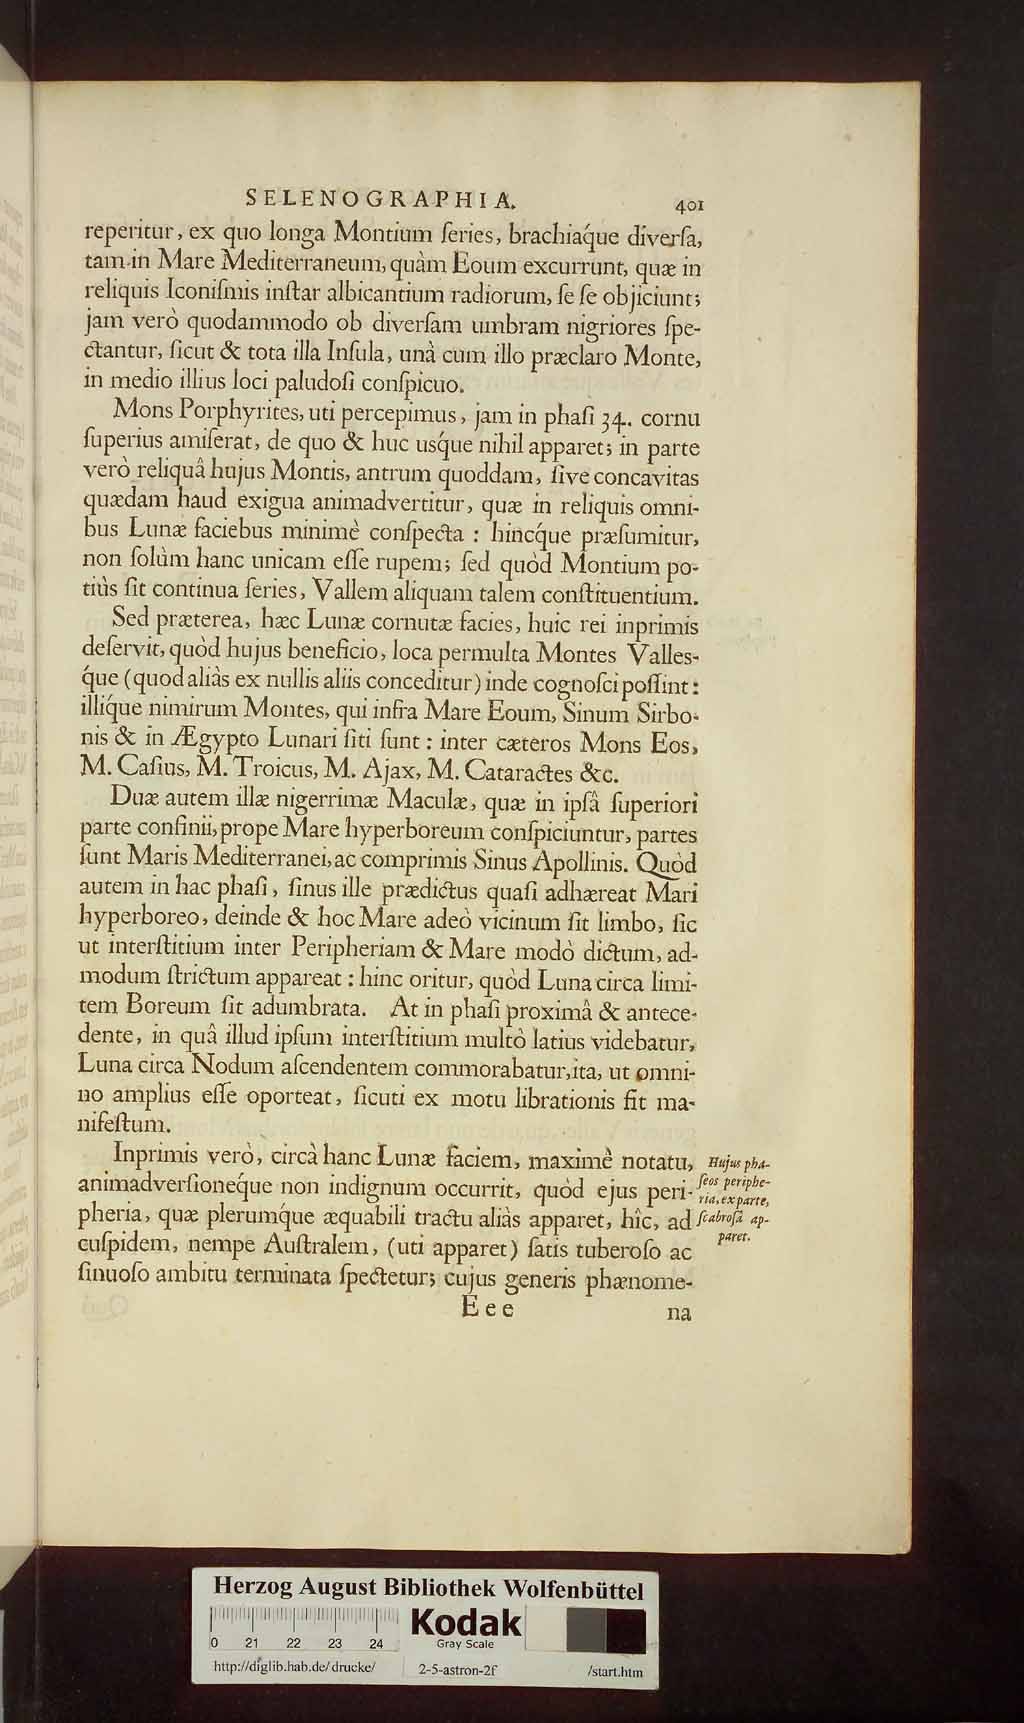 SELENOGRAPHIA. 401
reperitur, ex quo longa Montium ſeries, brachiaq́ue diverſa,
tam in Mare Mediterraneum, quàm Eoum excurrunt, quæ in
reliquis Iconiſmis inſtar albicantium radiorum, ſe ſe objiciunt;
jam verò quodammodo ob diverſam umbram nigriores ſpe-
ctantur, ſicut & tota illa Inſula, unà cum illo præclaro Monte,
in medio illius loci paludoſi conſpicuo.
Mons Porphyrites, uti percepimus, jam in phaſi 34. cornu
ſuperius amiſerat, de quo & huc usq́ue nihil apparet; in parte
verò reliquâ hujus Montis, antrum quoddam, ſive concavitas
quædam haud exigua animadvertitur, quæ in reliquis omni-
bus Lunæ faciebus minimè conſpecta : hincq́ue præſumitur,
non ſolùm hanc unicam eſſe rupem; ſed quòd Montium po-
tiùs ſit continua ſeries, Vallem aliquam talem conſtituentium.
Sed præterea, hæc Lunæ cornutæ facies, huic rei inprimis
deſervit, quòd hujus beneficio, loca permulta Montes Valles-
q́ue (quod aliàs ex nullis aliis conceditur) inde cognoſci poſſint:
illiq́ue nimirum Montes, qui infra Mare Eoum, Sinum Sirbo-
nis & in Ægypto Lunari ſiti ſunt : inter cæteros Mons Eos,
M. Caſius, M. Troicus, M. Ajax, M. Cataractes &c.
Duæ autem illæ nigerrimæ Maculæ, quæ in ipſâ ſuperiori
parte confinii, prope Mare hyperboreum conſpiciuntur, partes
ſunt Maris Mediterranei, ac comprimis Sinus Apollinis. Quòd
autem in hac phaſi, ſinus ille prædictus quaſi adhæreat Mari
hyperboreo, deinde & hoc Mare adeò vicinum ſit limbo, ſic
ut interſtitium inter Peripheriam & Mare modò dictum, ad-
modum ſtrictum appareat : hinc oritur, quòd Luna circa limi-
tem Boreum ſit adumbrata. At in phaſi proximâ & antece-
dente, in quâ illud ipſum interſtitium multò latius videbatur,
Luna circa Nodum aſcendentem commorabatur, ita, ut omni-
no amplius eſſe oporteat, ſicuti ex motu librationis fit ma-
nifeſtum.
Inprimis verò, circà hanc Lunæ faciem, maximè notatu,
animadverſioneq́ue non indignum occurrit, quòd ejus peri-
pheria, quæ plerumq́ue æquabili tractu aliàs apparet, hîc, ad
cuſpidem, nempe Auſtralem, (uti apparet) ſatis tuberoſo ac
ſinuoſo ambitu terminata ſpectetur; cujus generis phænome-
Eee na
Hujus pha-
ſeos periphe-
ria, ex parte,
ſcabroſâ ap-
paret.
Herzog August Bibliothek Wolfenbüttel
Kodak
Gray Scale
0 21 22 23 24
http://diglib.hab.de/drucke/ 2-5-astron-2f /start.htm